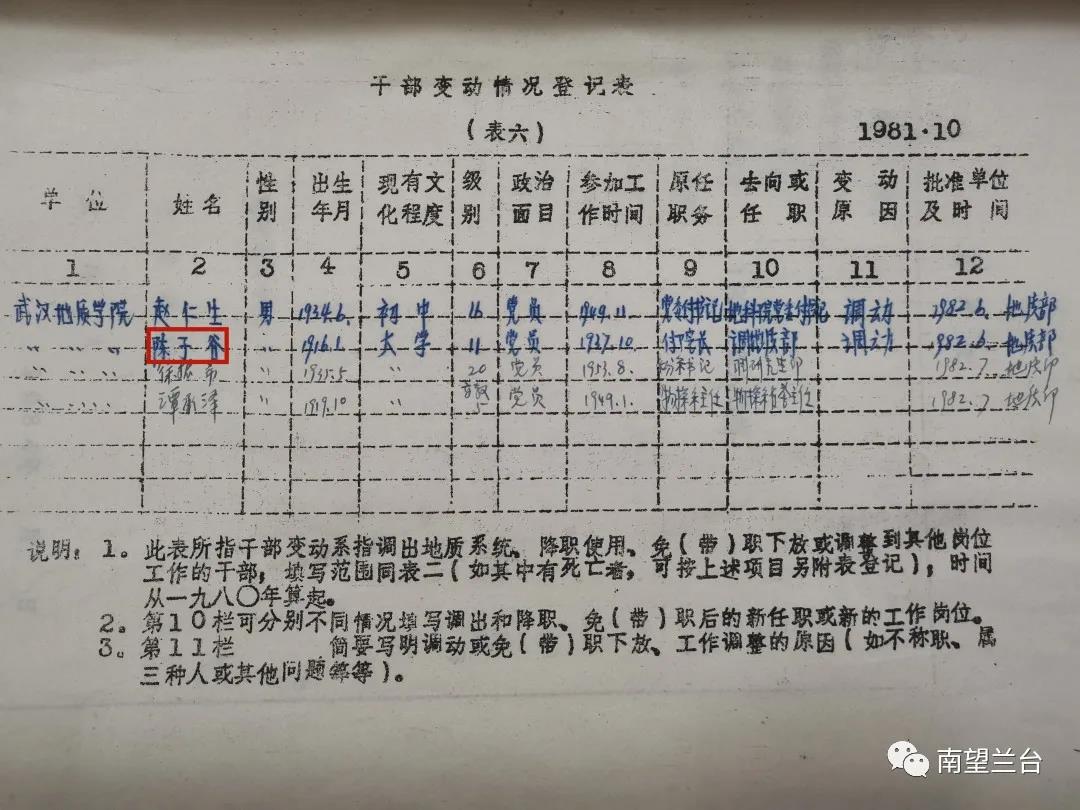 干部变动情况登记表
(表六)
1981.10
单位 姓名 性别 出生年月 现有文化程度 级别 政治面目 参加工作时间 原任职务 去向或任职 变动原因 批准单位及时间
1 2 3 4 5 6 7 8 9 10 11 12
武汉地质学院 赵仁生 男 1934.6. 初中 16 党员 1949.11. 调动 1982.6. 地质部
〃 〃 〃 〃 陈子谷 〃 1916.1 大学 11 党员 1937.10. 付院长 调地质部 调动 1982.6. 地质部
〃 〃 〃 〃 〃 1935.5 〃 20 党员 1953.8. 1982.7. 地质部
〃 〃 〃 〃 谭承泽 〃 1919.10 〃 党员 1949.1. 物探系主任 1982.7. 地质部
说明:1。此表所指干部变动系指调出地质系统、降职使用、免(带)职下放或调整到其他岗位
工作的干部,填写范围同表二(如其中有死亡者,可按上述项目另附表登记),时间
从一九八〇年算起。
2。第10栏可分别不同情况填写调出和降职、免(带)职后的新任职或新的工作岗位。
3。第11栏 简要写明调动或免(带)职下放、工作调整的原因(如不称职、属
三种人或其他问题等等)。
南望兰台